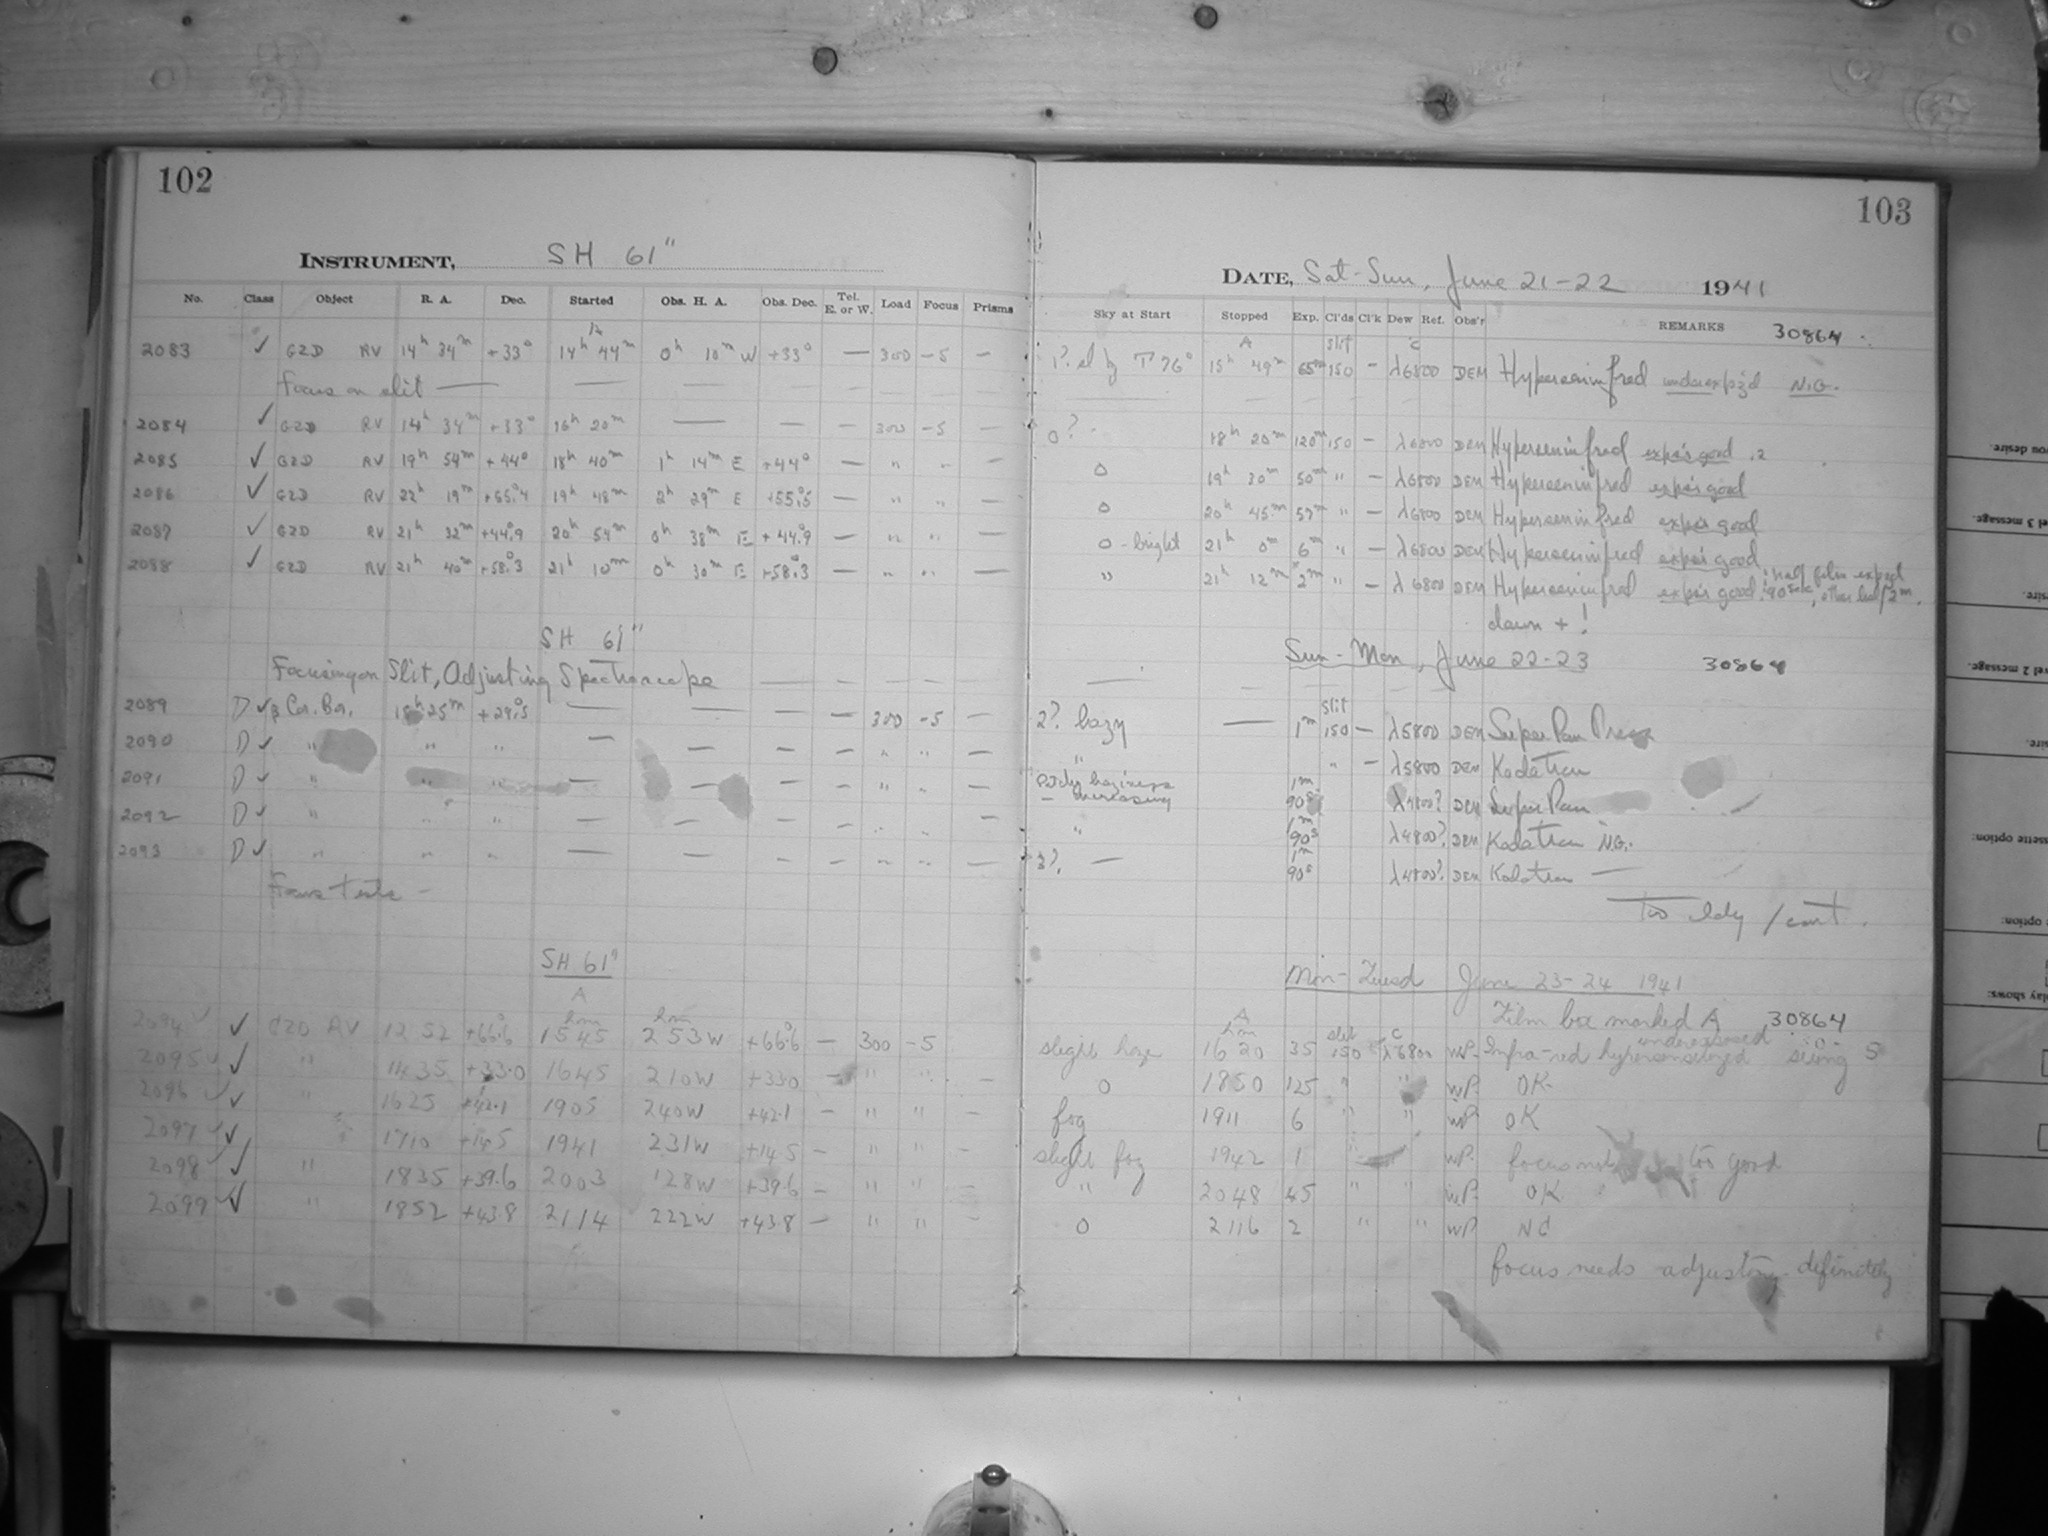 102
INSTRUMENT, SH 61"
No. Class Object R. A. Dec. Started Obs. H. A. Obs. Dec. Tel. E. or W. Load Focus Prisms
2083 ✓ GZD RV 14h 34m +33° 14h 44m 0h 10m W +33° — 300 -5 —
Focus on slit — — — — — — —
2084 ✓ GZD RV 14h 34m +33° 16h 20m — — — 300 -5 —
2085 ✓ GZD RV 19h 54m +44° 18h 40m 1h 14m E +44° — " " —
2086 ✓ GZD RV 22h 19m +55°.4 19h 48m 2h 29m E +55°.5 — " " —
2087 ✓ GZD RV 21h 32m +44°.9 20h 54m 0h 38m E +44°.9 — " " —
2088 ✓ GZD RV 21h 40m +58°.3 21h 10m 0h 30m E +58°.3 — " " —
SH 61"
Focusing on Slit, Adjusting Spectroscope — — — —
2089 D ✓ β Cor. Bor. 15h 25m +29°.5 — — — — 300 -5 —
2090 D ✓ " " " — — — — " " —
2091 D ✓ " " " — — — — " " —
2092 D ✓ " " " — — — — " " —
2093 D ✓ " " " — — — — " " —
Focus Tests —
SH 61"
A
2094 ✓ GZD RV 12 52 +66°.6 15 45 2 53 W +66°.6 — 300 -5
2095 ✓ " 14 35 +33.0 16 45 2 10 W +33.0 — " " —
2096 ✓ " 16 25 +42.1 19 05 2 40 W +42.1 — " " —
2097 ✓ 17 10 +14.5 19 41 2 31 W +14.5 — " " —
2098 ✓ " 18 35 +39.6 20 03 1 28 W +39.6 — " " —
2099 ✓ " 18 52 +43.8 21 14 2 22 W +43.8 — " " —
103
DATE, Sat-Sun, June 21-22 1941
Sky at Start Stopped Exp. Cl'ds Cl'k Dew Ref. Obs'r REMARKS 30864
A slit C
1? T 76° 15h 49m 65m 150 — λ6800 DEM Hypersen infred underexp'd N.G.
0? 18h 20m 120m 150 — λ6800 DEM Hypersen infred exp's good
0 19h 30m 50m " — λ6800 DEM Hypersen infred exp's good
0 20h 45m 57m " — λ6800 DEM Hypersen infred exp's good
0 - bright 21h 0m 6m " — λ6800 DEM Hypersen infred exp's good
" 21h 12m 2m " — λ6800 DEM Hypersen infred exp's good. half film exp'd 90 sec, other half 2m.
dawn + !
Sun - Mon, June 22-23 30864
slit
2? hazy — 1m 150 — λ5800 DEM Super Pan Press
" " — λ5800 DEM Kodatron
haziness increasing 1m 90s λ4800? DEM Super Pan
" 1m 90s λ4800? DEM Kodatron N.G.
3? — 1m 90s λ4800? DEM Kodatron —
Too cldy / cont.
Mon - Tuesd June 23-24 1941
Film box marked A 30864
A slit C underexposed
slight haze 16 20 35 150 λ6800 WP. Infra-red hypersensitized seeing 5
0 18 50 125 " " WP. OK.
fog 19 11 6 " " WP. OK
slight fog 19 42 1 " WP. focus not too good
" 20 48 45 " " WP. OK
0 21 16 2 " " WP. NG
focus needs adjusting definitely